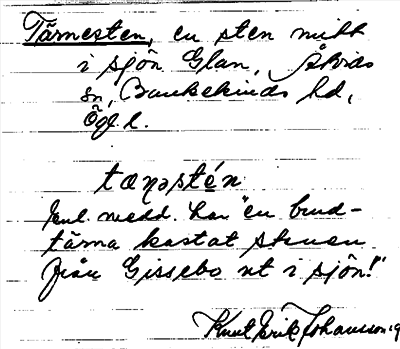 Tärnesten, en sten mitt
i sjön Glan, Åtvids
sn, Bankekinds hd,
Ögl.
tæṇəstén
Enl. medd. har "en brud-
tärna kastat stenen
från Gissebo ut i sjön!"
Knut Erik Johansson